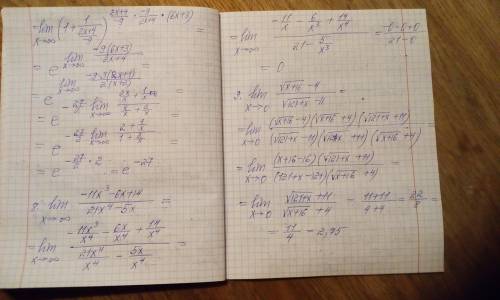 lim x→∞ (1 + 1/((2x+4)/-9))^((2x+4)/-9 · -9/(2x+4) · (6x+3)) =
= e^(lim x→∞ -9(6x+3)/(2x+4)) =
= e^(lim x→∞ -9·3(2x+1)/(2(x+2))) =
= e^(-27/2 lim x→∞ (2x/x + 1/x)/(x/x + 2/x))
= e^(-27/2 lim x→∞ (2 + 1/x)/(1 + 2/x))
= e^(-27/2 · 2) = e^(-27)
lim x→∞ (-11x³-6x+14)/(21x⁴-5x) =
= lim x→∞ (-11x³/x⁴ - 6x/x⁴ + 14/x⁴)/(21x⁴/x⁴ - 5x/x⁴) =
= lim x→∞ (-11/x - 6/x³ + 14/x⁴)/(21 - 5/x³) = (-0-0+0)/(21-0)
= 0
lim x→0 (√(x+16) - 4)/(√(121+x) - 11) =
= lim x→0 (√(x+16) - 4)(√(x+16) + 4)(√(121+x) + 11)/(√(121+x) - 11)(√(121+x) + 11)(√(x+16) + 4)
= lim x→0 (x+16-16)(√(121+x) + 11)/(121+x-121)(√(x+16) + 4) =
= lim x→0 (√(121+x) + 11)/(√(x+16) + 4) = (11+11)/(4+4) = 22/8
= 11/4 = 2,75